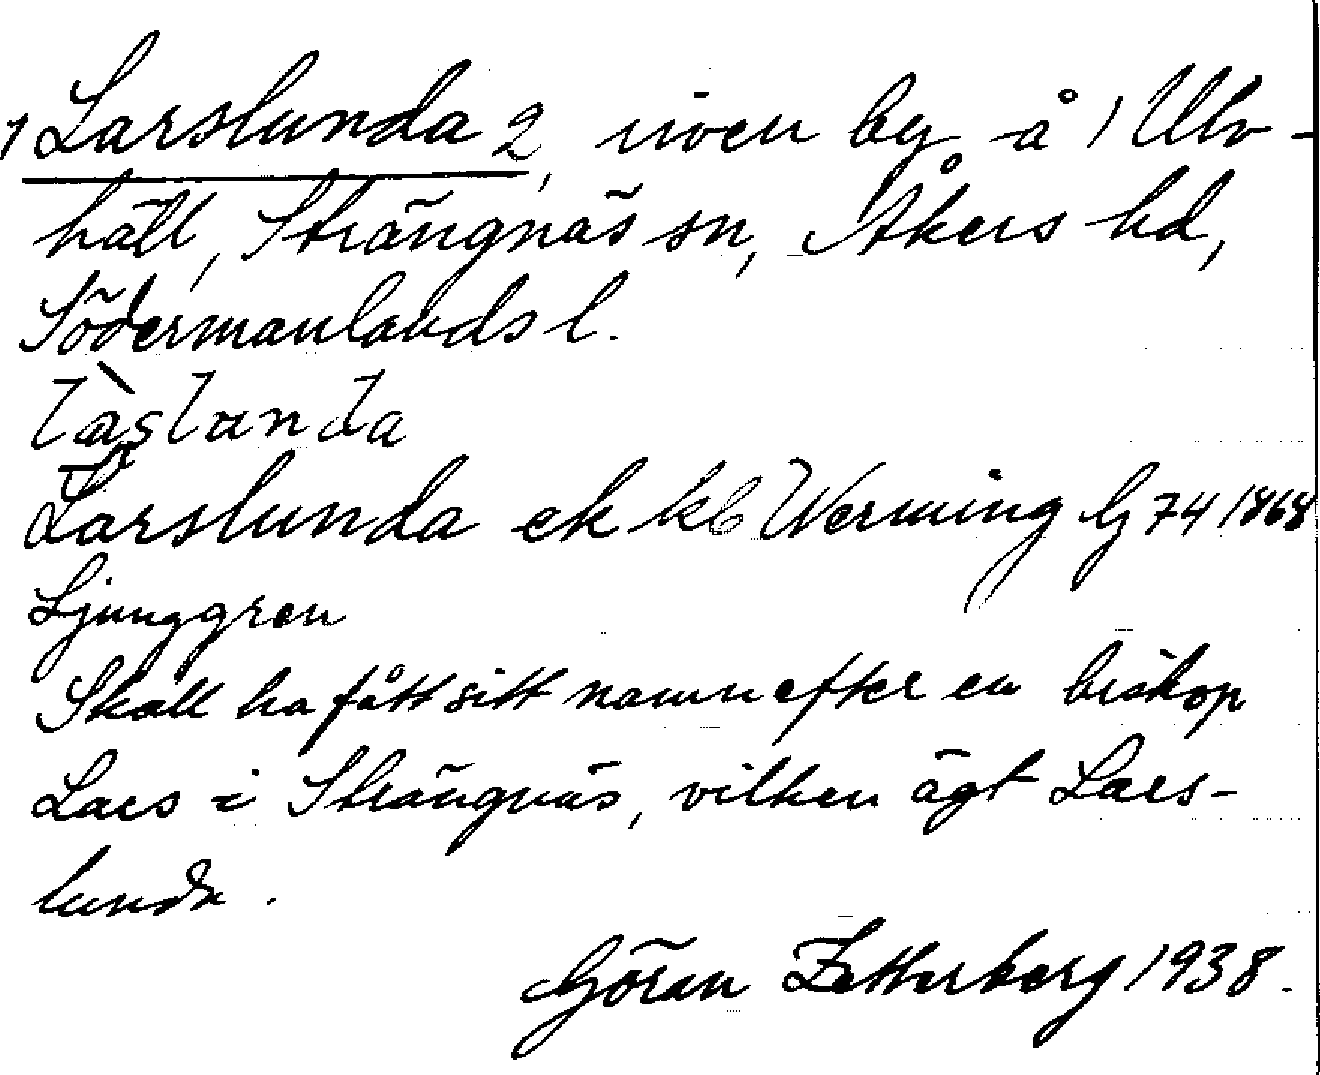 1 Larslunda 2, inven by å 1 Ulv-
häll, Strängnäs sn, Åkers hd,
Södermanlands l.
làslunda
Larslunda ek kb Werming G 74 1868
Ljunggren
Skall ha fått sitt namn efter en biskop
Lars i Strängnäs, vilken ägt Lars-
lunda.
Göran Zetterberg 1938.